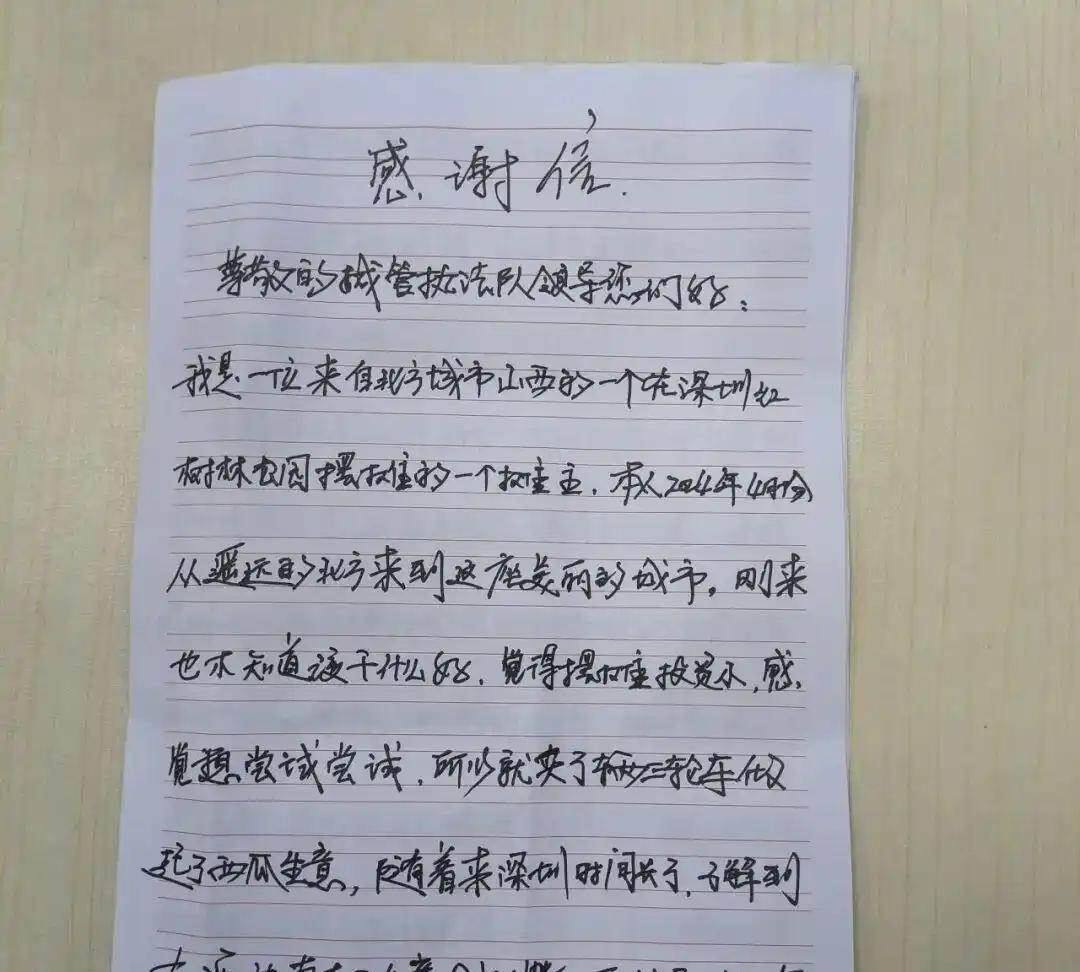 感谢信
尊敬的城管执法队领导您们好:
我是一位来自北方城市山西的一个在深圳红
树林公园摆摊位的一个摊主,本人2024年4月份
从遥远的北方来到这座美丽的城市。刚来
也不知道该干什么好,觉得摆摊位投资小,感
觉想尝试尝试,所以就买了辆三轮车做
起了西瓜生意,随着来深圳时间长了,了解到